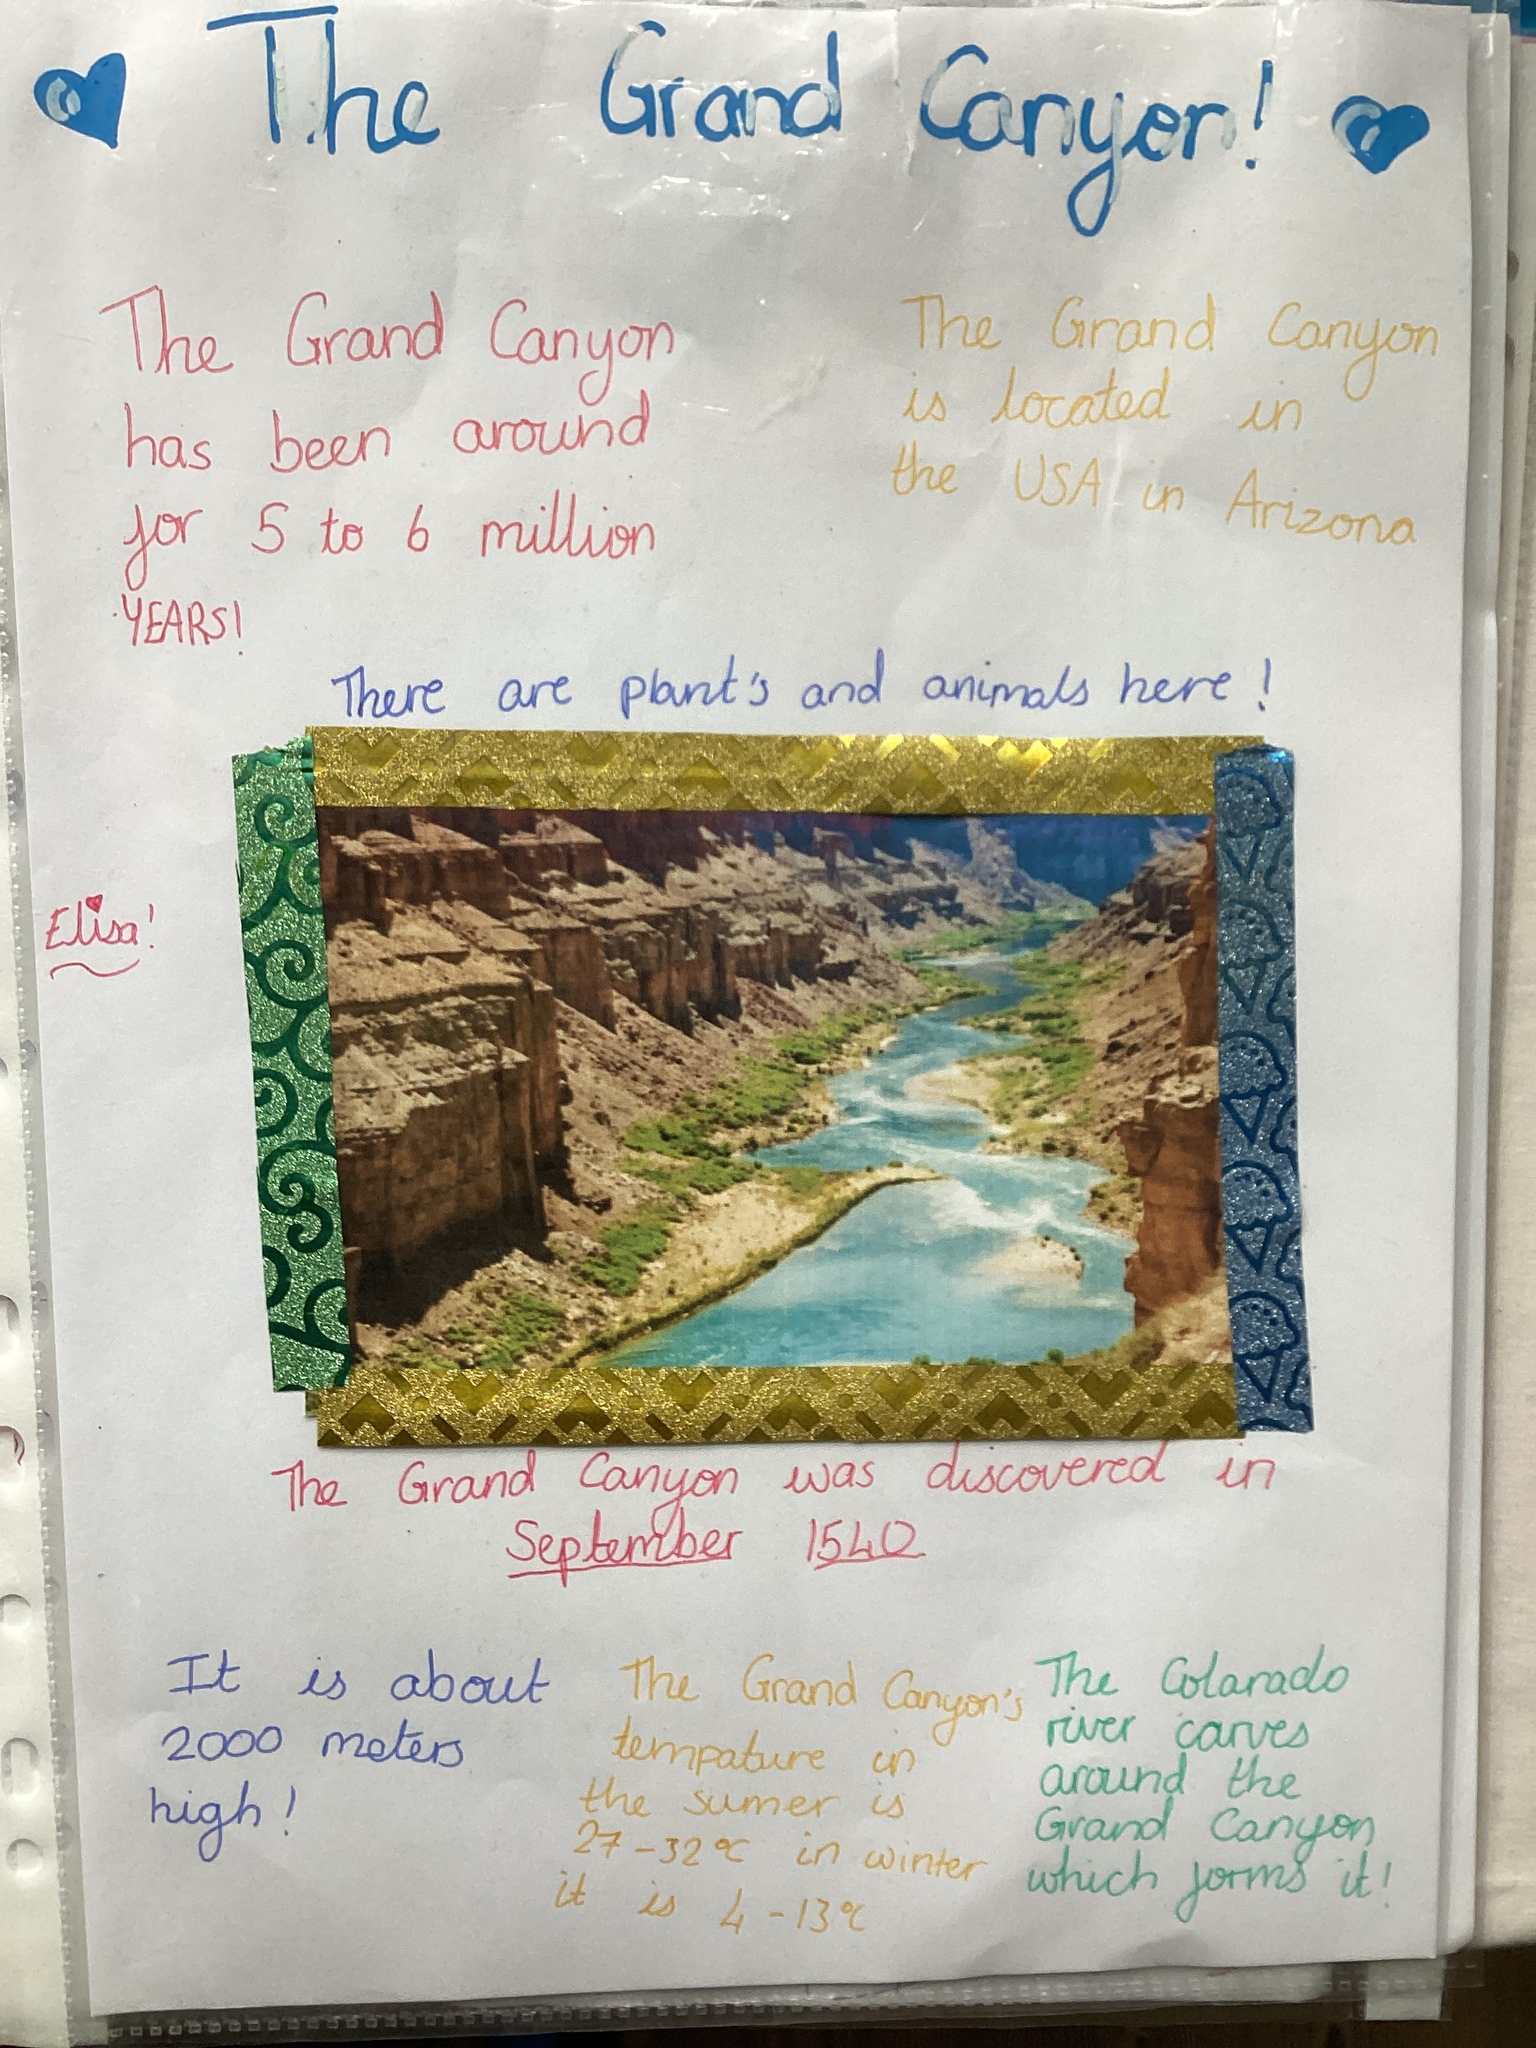 The Grand Canyon!
The Grand Canyon
has been around
for 5 to 6 million
YEARS!
The Grand Canyon
is located in
the USA in Arizona
There are plant's and animals here!
Elisa!
The Grand Canyon was discovered in
September 1540
It is about
2000 meters
high!
The Grand Canyon's
tempature in
the sumer is
27-32°C in winter
it is 4-13°C
The Colarado
river carves
around the
Grand Canyon
which forms it!